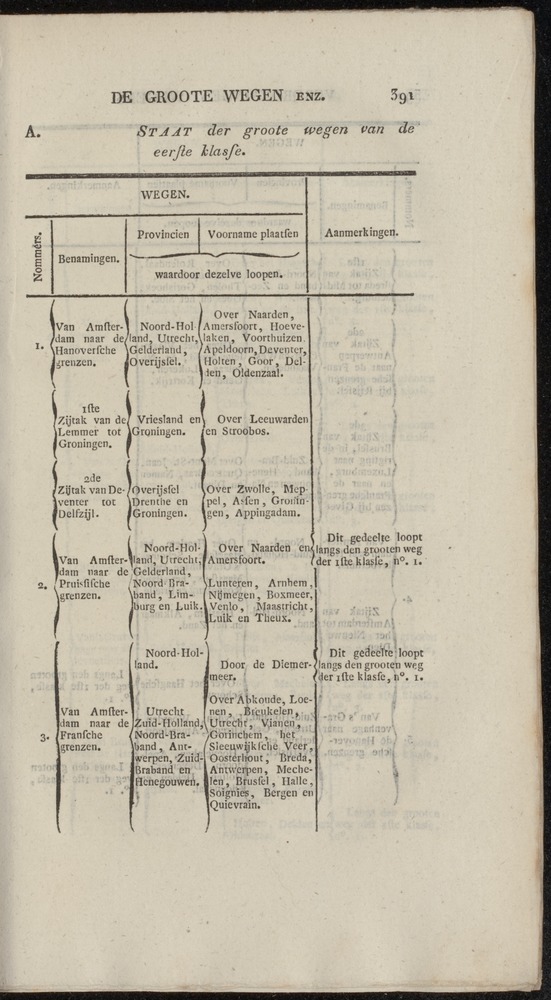 DE GROOTE WEGEN ENZ. 391
A. STAAT der groote wegen van de
eerſte klasſe.
WEGEN.
Nommérs.
Benamingen.
Provincien
Voorname plaatſen
waardoor dezelve loopen.
Aanmerkingen.
1.
Van Amſter-
dam naar de
Hanoverſche
grenzen.
Noord-Hol-
land, Utrecht,
Gelderland,
Overijsſel.
Over Naarden,
Amersfoort, Hoeve-
laken, Voorthuizen,
Apeldoorn, Deventer,
Holten, Goor, Del-
den, Oldenzaal.
1ſte
Zijtak van de
Lemmer tot
Groningen.
Vriesland en
Groningen.
Over Leeuwarden
en Stroobos.
2de
Zijtak van De-
venter tot
Delfzijl.
Overijsſel
Drenthe en
Groningen.
Over Zwolle, Mep-
pel, Asſen, Gronin-
gen, Appingadam.
2.
Van Amſter-
dam naar de
Pruisſiſche
grenzen.
Noord-Hol-
land, Utrecht,
Gelderland,
Noord-Bra-
band, Lim-
burg en Luik.
Over Naarden en
Amersfoort.
Lunteren, Arnhem,
Nijmegen, Boxmeer,
Venlo, Maastricht,
Luik en Theux.
Dit gedeelte loopt
langs den grooten weg
der 1ſte klasſe, nº. 1.
3.
Van Amſter-
dam naar de
Franſche
grenzen.
Noord-Hol-
land.
Door de Diemer-
meer.
Dit gedeelte loopt
langs den grooten weg
der 1ſte klasſe, nº. 1.
Utrecht
Zuid-Holland,
Noord-Bra-
band, Ant-
werpen, Zuid-
Braband en
Henegouwen.
Over Abkoude, Loe-
nen, Breukelen,
Utrecht, Vianen,
Gorinchem, het
Sleeuwijkſche Veer,
Oosterhout, Breda,
Antwerpen, Meche-
len, Brusſel, Halle,
Soignies, Bergen en
Quievrain.